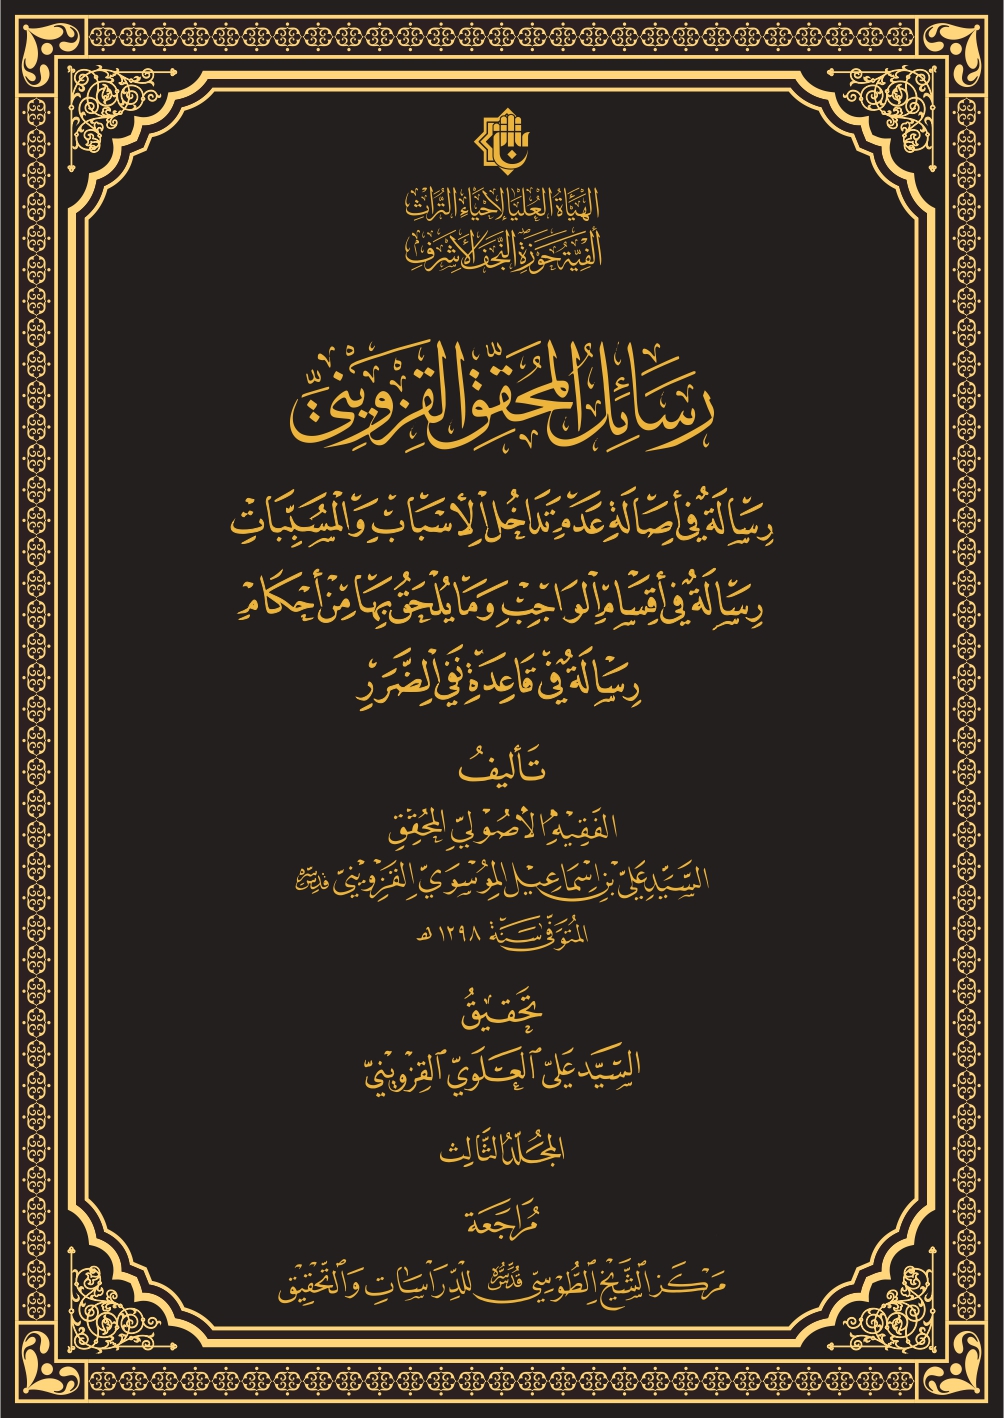 الهَيْأَةُ العُليَا لِإحْيَاءِ التُّرَاثِ
ألفِيَّةُ حَوْزَةِ النَّجَفِ الأَشْرَفِ
رَسَائِلُ المُحَقِّقِ القَزْوِينِيِّ
رِسَالَةٌ فِي أَصَالَةِ عَدَمِ تَدَاخُلِ الأَسْبَابِ وَالمُسَبَّبَاتِ
رِسَالَةٌ فِي أَقسَامِ الوَاجِبِ وَمَا يُلْحَقُ بِهَا مِنْ أَحْكَامٍ
رِسَالَةٌ فِي قَاعِدَةِ نَفْيِ الضَّرَرِ
تَأليفُ
الفَقِيهِ الأُصُولِيِّ المُحَقِّقِ
السَّيِّدِ عَلِيِّ بْنِ إِسْمَاعِيلَ المُوسَوِيِّ القَزْوِينِيِّ قدس سره
المُتَوَفَّى سَنَةَ ١٢٩٨ هـ
تَحْقِيقُ
السَّيِّد عَلِيّ العَلَوِيّ القَزْوِينِيّ
المُجَلَّدُ الثَّالِث
مُرَاجَعَة
مَرْكَز الشَّيْخِ الطُّوسِيِّ قدس سره لِلدِّرَاسَاتِ وَالتَّحْقِيقِ